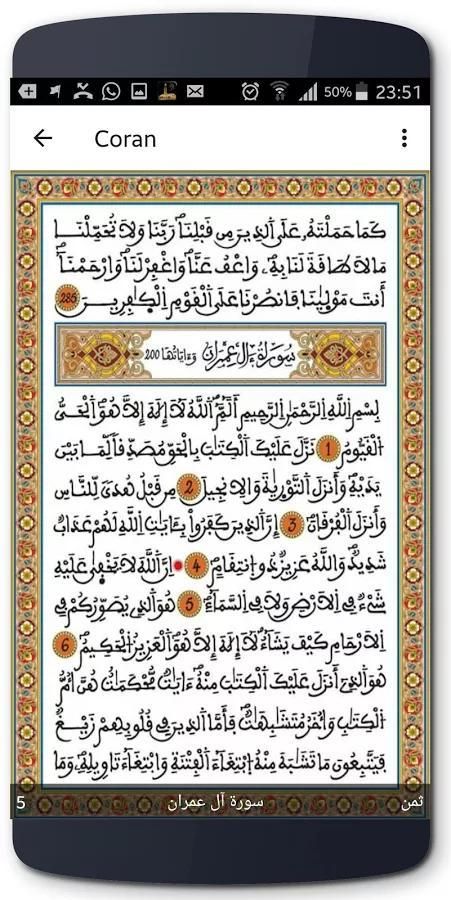 50% 23:51
Coran
كَمَا حَمَلْتَهُۥ عَلَى ٱلذِينَ مِن قَبْلِنَا رَبَّنَا وَلَا تُحَمِّلْنَا
مَا لَا طَاقَةَ لَنَا بِهِۦ وَاعْفُ عَنَّا وَاغْفِرْ لَنَا وَارْحَمْنَا
أَنتَ مَوْلَىٰنَا فَانصُرْنَا عَلَى ٱلْقَوْمِ ٱلْكَٰفِرِينَ 285
سُورَةُ ءَالِ عِمْرَٰنَ وَءَايَاتُهَا 200
بِسْمِ ٱللَّهِ ٱلرَّحْمَٰنِ ٱلرَّحِيمِ أَلَٓمِّٓ ٱللَّهُ لَآ إِلَٰهَ إِلَّا هُوَ ٱلْحَىُّ
ٱلْقَيُّومُ 1 نَزَّلَ عَلَيْكَ ٱلْكِتَٰبَ بِالْحَقِّ مُصَدِّقاً لِّمَا بَيْنَ
يَدَيْهِ وَأَنزَلَ ٱلتَّوْرَىٰةَ وَالِانجِيلَ 2 مِن قَبْلُ هُدىً لِّلنَّاسِ
وَأَنزَلَ ٱلْفُرْقَانَ 3 إِنَّ ٱلذِينَ كَفَرُوا۟ بِـَٔايَٰتِ ٱللَّهِ لَهُمْ عَذَابٌ
شَدِيدٌ وَاللَّهُ عَزِيزٌ ذُو ٱنتِقَامٍ 4 اِنَّ ٱللَّهَ لَا يَخْفَىٰ عَلَيْهِ
شَىْءٌ فِى ٱلَارْضِ وَلَا فِى ٱلسَّمَآءِ 5 هُوَ ٱلذِى يُصَوِّرُكُمْ فِى
اِلَارْحَامِ كَيْفَ يَشَآءُ لَآ إِلَٰهَ إِلَّا هُوَ ٱلْعَزِيزُ ٱلْحَكِيمُ 6
هُوَ ٱلذِىٓ أَنزَلَ عَلَيْكَ ٱلْكِتَٰبَ مِنْهُ ءَايَٰتٌ مُّحْكَمَٰتٌ هُنَّ أُمُّ
ٱلْكِتَٰبِ وَأُخَرُ مُتَشَٰبِهَٰتٌ فَأَمَّا ٱلذِينَ فِى قُلُوبِهِمْ زَيْغٌ
فَيَتَّبِعُونَ مَا تَشَٰبَهَ مِنْهُ ٱبْتِغَآءَ ٱلْفِتْنَةِ وَابْتِغَآءَ تَاوِيلِهِۦ وَمَا
ثمن سورة آل عمران 5